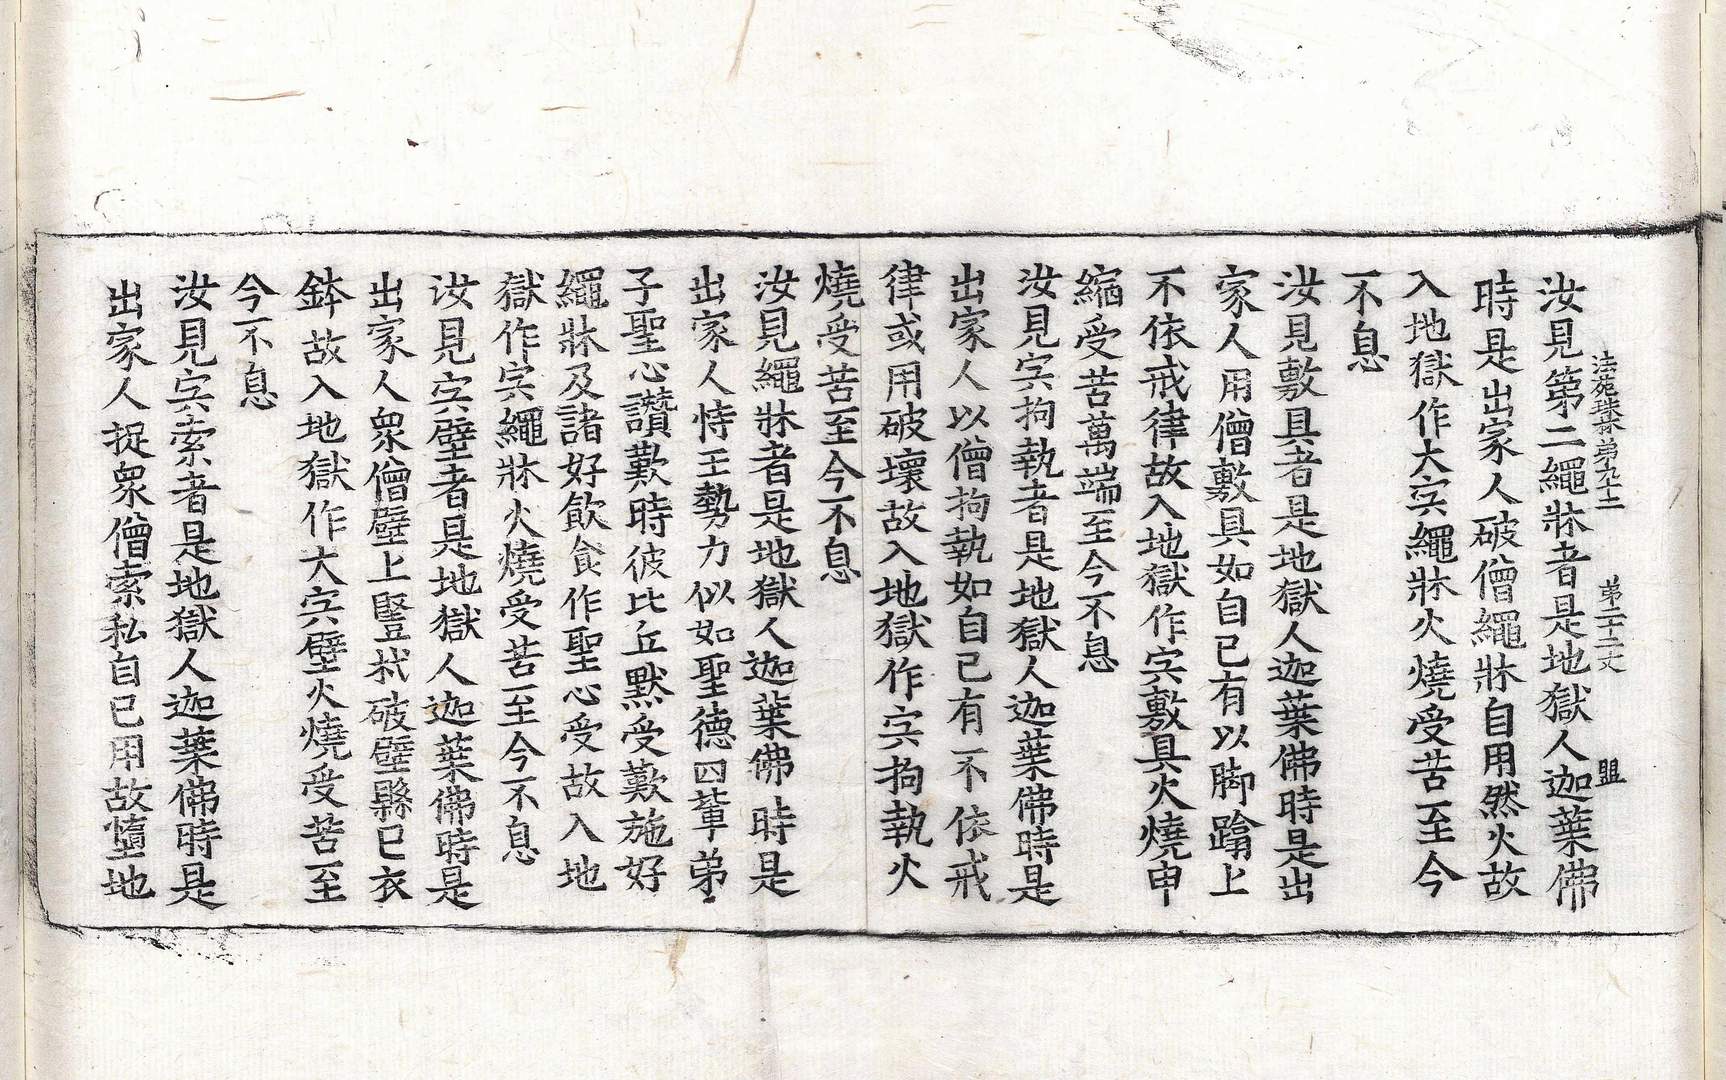 法苑珠林第九十二 第二十二丈 盟
汝見第二繩牀者是地獄人迦葉佛
時是出家人破僧繩牀自用然火故
入地獄作大宍繩牀火燒受苦至今
不息
汝見敷具者是地獄人迦葉佛時是出
家人用僧敷具如自己有以脚蹋上
不依戒律故入地獄作宍敷具火燒申
縮受苦萬端至今不息
汝見宍拘執者是地獄人迦葉佛時是
出家人以僧拘執如自己有不依戒
律或用破壞故入地獄作宍拘執火
燒受苦至今不息
汝見繩牀者是地獄人迦葉佛時是
出家人恃王勢力似如聖德四輩弟
子聖心讚歎時彼比丘默受歎施好
繩牀及諸好飲食作聖心受故入地
獄作宍繩牀火燒受苦至今不息
汝見宍壁者是地獄人迦葉佛時是
出家人衆僧壁上竪杙破壁縣己衣
鉢故入地獄作大宍壁火燒受苦至
今不息
汝見宍索者是地獄人迦葉佛時是
出家人捉衆僧索私自己用故墮地